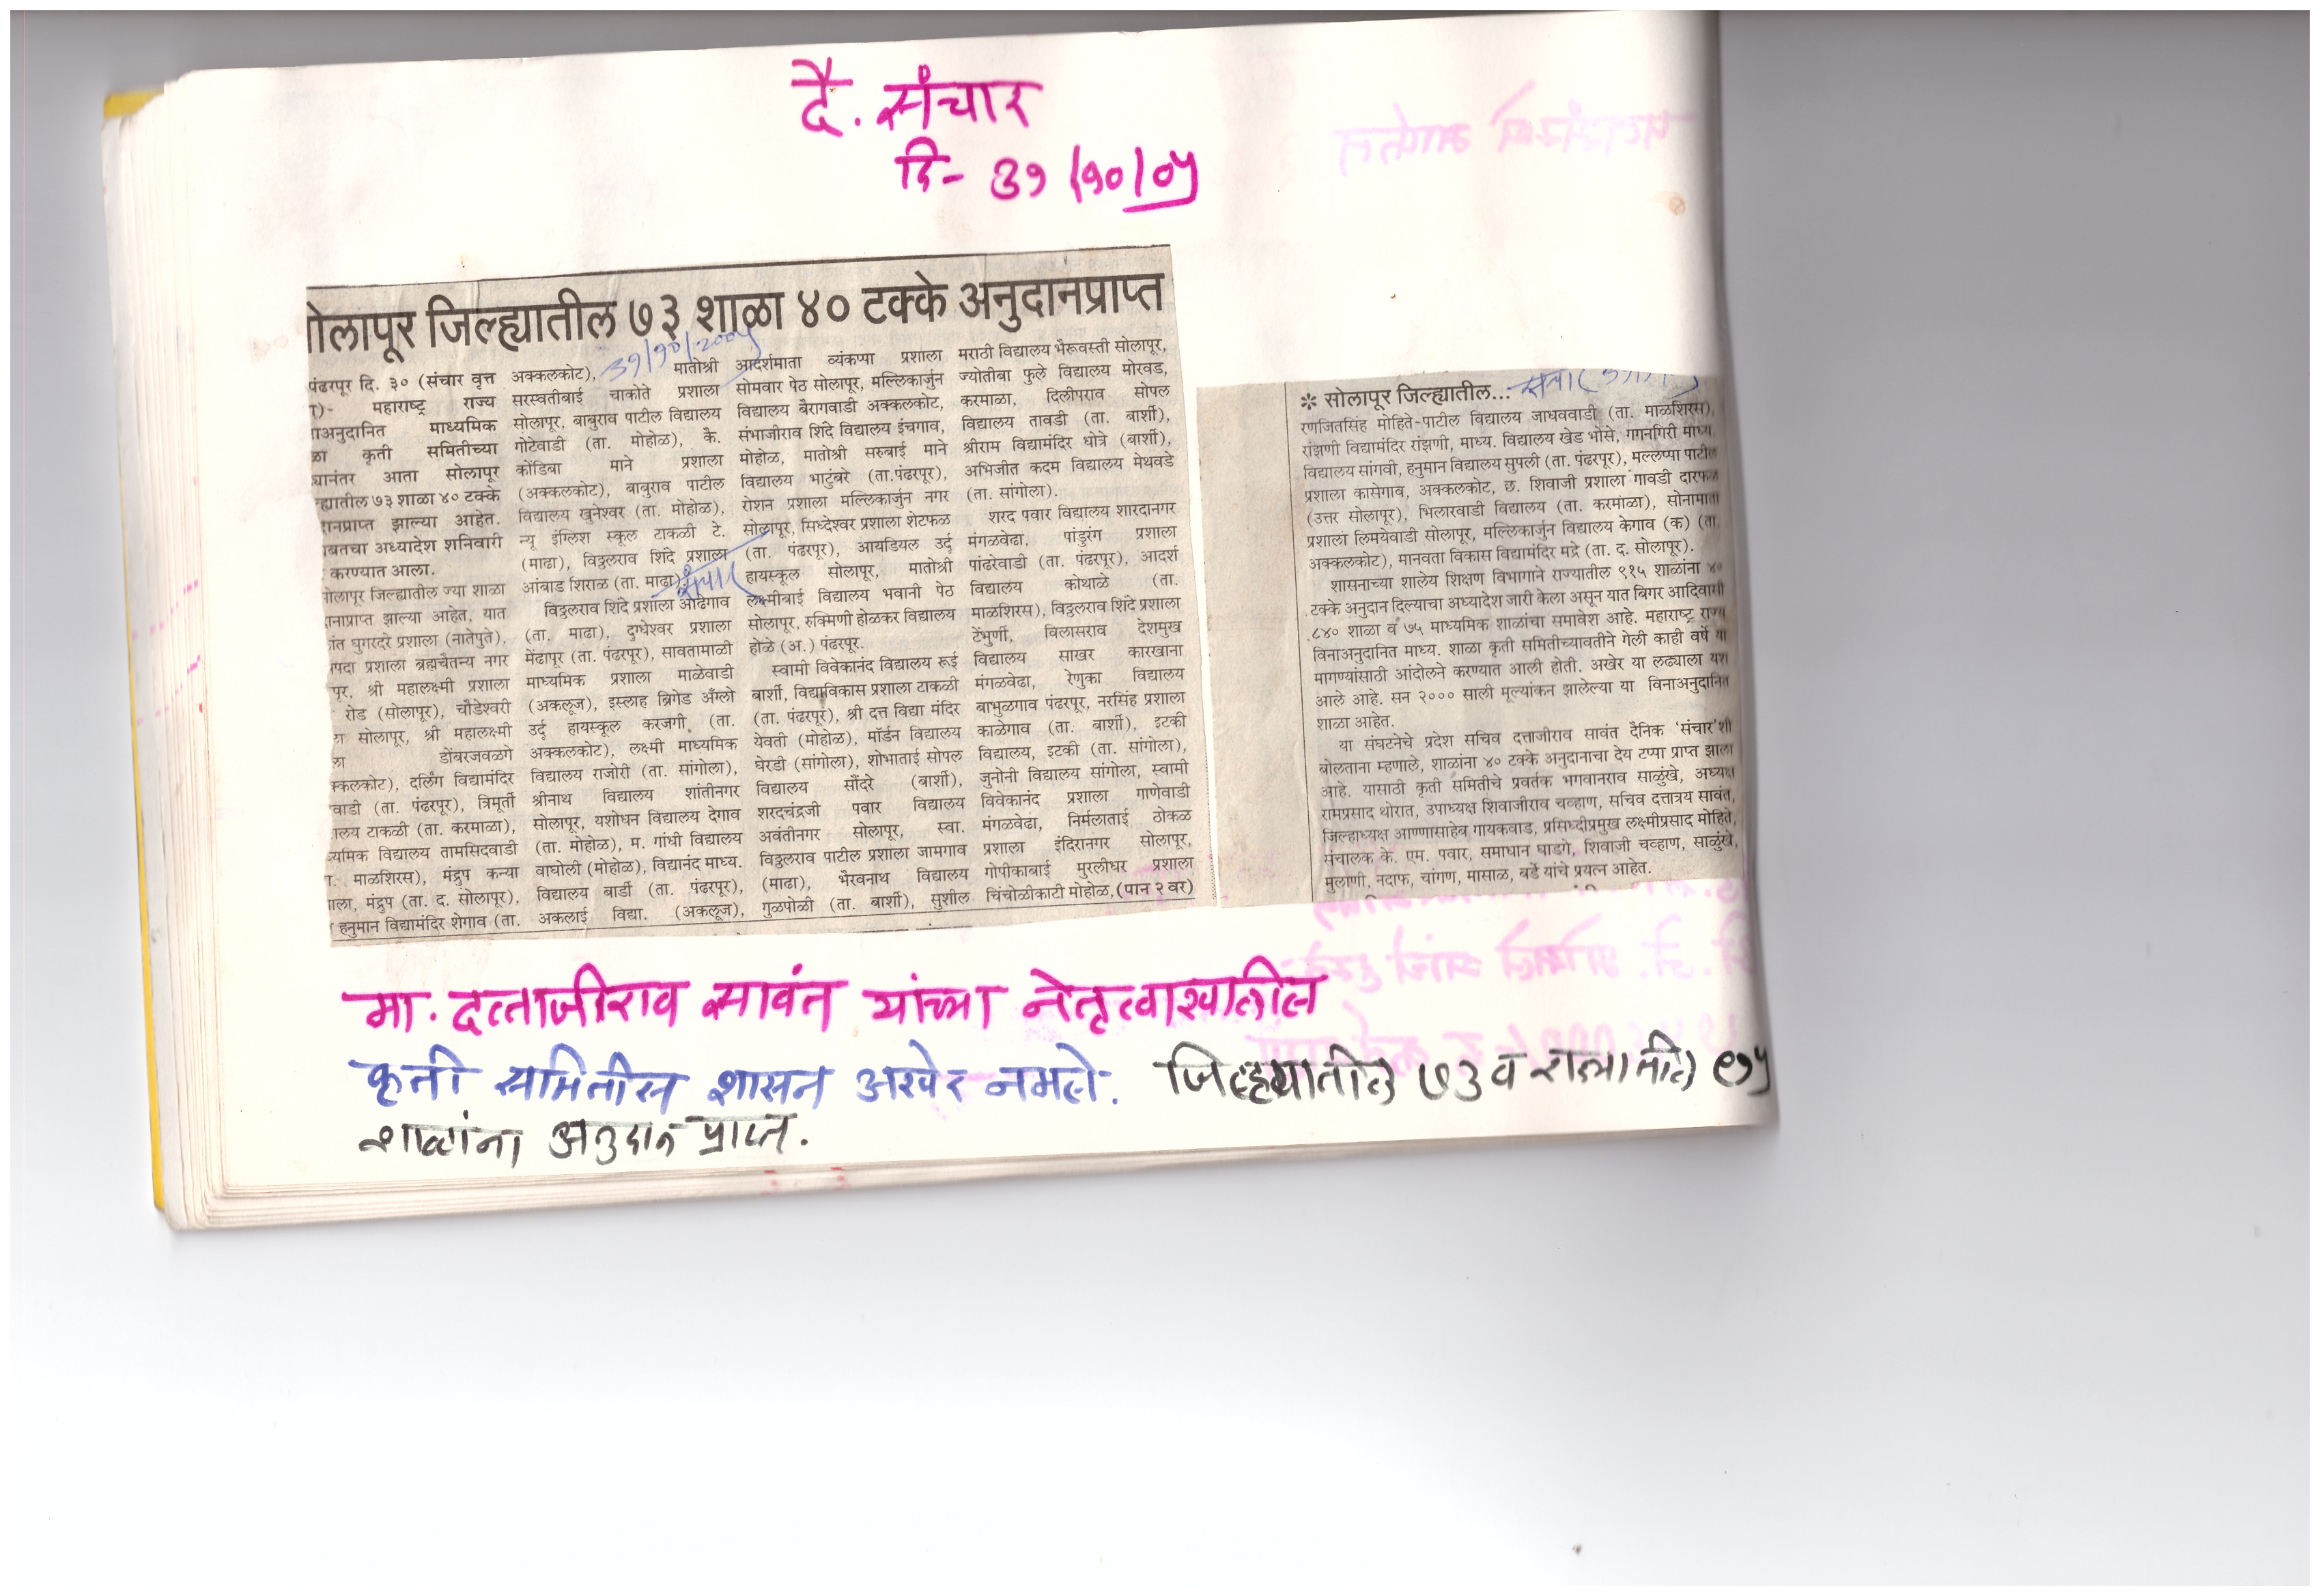 दै. संचार
दि- ३१/१०/०५
ोलापूर जिल्ह्यातील ७३ शाळा ४० टक्के अनुदानप्राप्त
३१/१०/२००५
पंढरपूर दि. ३० (संचार वृत्त
)- महाराष्ट्र राज्य
अनुदानित माध्यमिक
ळा कृती समितीच्या
यानंतर आता सोलापूर
ह्यातील ७३ शाळा ४० टक्के
दानप्राप्त झाल्या आहेत.
बतचा अध्यादेश शनिवारी
करण्यात आला.
ोलापूर जिल्ह्यातील ज्या शाळा
दानप्राप्त झाल्या आहेत, यात
ंत घुगरदरे प्रशाला (नातेपुते),
पदा प्रशाला ब्रह्मचैतन्य नगर
पूर, श्री महालक्ष्मी प्रशाला
रोड (सोलापूर), चौडेश्वरी
सोलापूर, श्री महालक्ष्मी
ला डोंबरजवळगे
क्कलकोट), दर्लिंग विद्यामंदिर
वाडी (ता. पंढरपूर), त्रिमूर्ती
ालय टाकळी (ता. करमाळा),
यमिक विद्यालय तामसिदवाडी
. माळशिरस), मंद्रुप कन्या
ाला, मंद्रुप (ता. द. सोलापूर),
हनुमान विद्यामंदिर शेगाव (ता.
अक्कलकोट), मातोश्री
सरस्वतीबाई चाकोते प्रशाला
सोलापूर, बाबुराव पाटील विद्यालय
गोटेवाडी (ता. मोहोळ), कै.
कोंडिबा माने प्रशाला
(अक्कलकोट), बाबुराव पाटील
विद्यालय खुनेश्वर (ता. मोहोळ),
न्यू इंग्लिश स्कूल टाकळी टे.
(माढा), विठ्ठलराव शिंदे प्रशाला
आंबाड शिराळ (ता. माढा) संचार
विठ्ठलराव शिंदे प्रशाला ओढेगाव
(ता. माढा), दुग्धेश्वर प्रशाला
मेंढापूर (ता. पंढरपूर), सावतामाळी
माध्यमिक प्रशाला माळेवाडी
(अकलूज), इस्लाह ब्रिगेड अँग्लो
उर्दू हायस्कूल करजगी, (ता.
अक्कलकोट), लक्ष्मी माध्यमिक
विद्यालय राजोरी (ता. सांगोला),
श्रीनाथ विद्यालय शांतीनगर
सोलापूर, यशोधन विद्यालय देगाव
(ता. मोहोळ), म. गांधी विद्यालय
वाघोली (मोहोळ), विद्यानंद माध्य.
विद्यालय बार्डी (ता. पंढरपूर),
अकलाई विद्या. (अकलूज),
आदर्शमाता व्यंकप्पा प्रशाला
सोमवार पेठ सोलापूर, मल्लिकार्जुन
विद्यालय बैरागवाडी अक्कलकोट,
संभाजीराव शिंदे विद्यालय इंचगाव,
मोहोळ, मातोश्री सरुबाई माने
विद्यालय भाटुंबरे (ता.पंढरपूर),
रोशन प्रशाला मल्लिकार्जुन नगर
सोलापूर, सिध्देश्वर प्रशाला शेटफळ
(ता. पंढरपूर), आयडियल उर्दू
हायस्कूल सोलापूर, मातोश्री
लक्ष्मीबाई विद्यालय भवानी पेठ
सोलापूर, रुक्मिणी होळकर विद्यालय
होळे (अ.) पंढरपूर.
स्वामी विवेकानंद विद्यालय रूई
बार्शी, विद्याविकास प्रशाला टाकळी
(ता. पंढरपूर), श्री दत्त विद्या मंदिर
येवती (मोहोळ), मॉर्डन विद्यालय
घेरडी (सांगोला), शोभाताई सोपल
विद्यालय सौंदरे (बार्शी),
शरदचंद्रजी पवार विद्यालय
अवंतीनगर सोलापूर, स्वा.
विठ्ठलराव पाटील प्रशाला जामगाव
(माढा), भैरवनाथ विद्यालय
गुळपोळी (ता. बार्शी), सुशील
मराठी विद्यालय भैरूवस्ती सोलापूर,
ज्योतीबा फुले विद्यालय मोरवड,
करमाळा, दिलीपराव सोपल
विद्यालय तावडी (ता. बार्शी),
श्रीराम विद्यामंदिर धोत्रे (बार्शी),
अभिजीत कदम विद्यालय मेथवडे
(ता. सांगोला).
शरद पवार विद्यालय शारदानगर
मंगळवेढा, पांडुरंग प्रशाला
पांढरेवाडी (ता. पंढरपूर), आदर्श
विद्यालय कोथाळे (ता.
माळशिरस), विठ्ठलराव शिंदे प्रशाला
टेंभुर्णी, विलासराव देशमुख
विद्यालय साखर कारखाना
मंगळवेढा, रेणुका विद्यालय
बाभुळगाव पंढरपूर, नरसिंह प्रशाला
काळेगाव (ता. बार्शी), इटकी
विद्यालय, इटकी (ता. सांगोला),
जुनोनी विद्यालय सांगोला, स्वामी
विवेकानंद प्रशाला गाणेवाडी
मंगळवेढा, निर्मलाताई ठोकळ
प्रशाला इंदिरानगर सोलापूर,
गोपीकाबाई मुरलीधर प्रशाला
चिंचोळीकाटी मोहोळ, (पान २ वर)
✻ सोलापूर जिल्ह्यातील... संचार
रणजितसिंह मोहिते-पाटील विद्यालय जाधववाडी (ता. माळशिरस),
रांझणी विद्यामंदिर रांझणी, माध्य. विद्यालय खेड भोसे, गगनगिरी माध्य.
विद्यालय सांगवी, हनुमान विद्यालय सुपली (ता. पंढरपूर), मल्लेप्पा पाटील
प्रशाला कासेगाव, अक्कलकोट, छ. शिवाजी प्रशाला गावडी दारफळ
(उत्तर सोलापूर), भिलारवाडी विद्यालय (ता. करमाळा), सोनामाता
प्रशाला लिमयेवाडी सोलापूर, मल्लिकार्जुन विद्यालय केगाव (क) (ता.
अक्कलकोट), मानवता विकास विद्यामंदिर मद्रे (ता. द. सोलापूर).
शासनाच्या शालेय शिक्षण विभागाने राज्यातील ९१५ शाळांना ४०
टक्के अनुदान दिल्याचा अध्यादेश जारी केला असून यात बिगर आदिवासी
८४० शाळा व ७५ माध्यमिक शाळांचा समावेश आहे. महाराष्ट्र राज्य
विनाअनुदानित माध्य. शाळा कृती समितीच्यावतीने गेली काही वर्षे या
मागण्यांसाठी आंदोलने करण्यात आली होती. अखेर या लढ्याला यश
आले आहे. सन २००० साली मूल्यांकन झालेल्या या विनाअनुदानित
शाळा आहेत.
या संघटनेचे प्रदेश सचिव दत्ताजीराव सावंत दैनिक 'संचार'शी
बोलताना म्हणाले, शाळांना ४० टक्के अनुदानाचा देय टप्पा प्राप्त झाला
आहे. यासाठी कृती समितीचे प्रवर्तक भगवानराव साळुंखे, अध्यक्ष
रामप्रसाद थोरात, उपाध्यक्ष शिवाजीराव चव्हाण, सचिव दत्तात्रय सावंत,
जिल्हाध्यक्ष आण्णासाहेब गायकवाड, प्रसिध्दीप्रमुख लक्ष्मीप्रसाद मोहिते,
संचालक के. एम. पवार, समाधान घाडगे, शिवाजी चव्हाण, साळुंखे,
मुलाणी, नदाफ, चांगण, मासाळ, बर्डे यांचे प्रयत्न आहेत.
मा. दत्ताजीराव सावंत यांच्या नेतृत्वाखालील
कृती समितीस शासन अखेर नमले. जिल्ह्यातील ७३ व राज्यातील ९१५
शाळांना अनुदान प्राप्त.